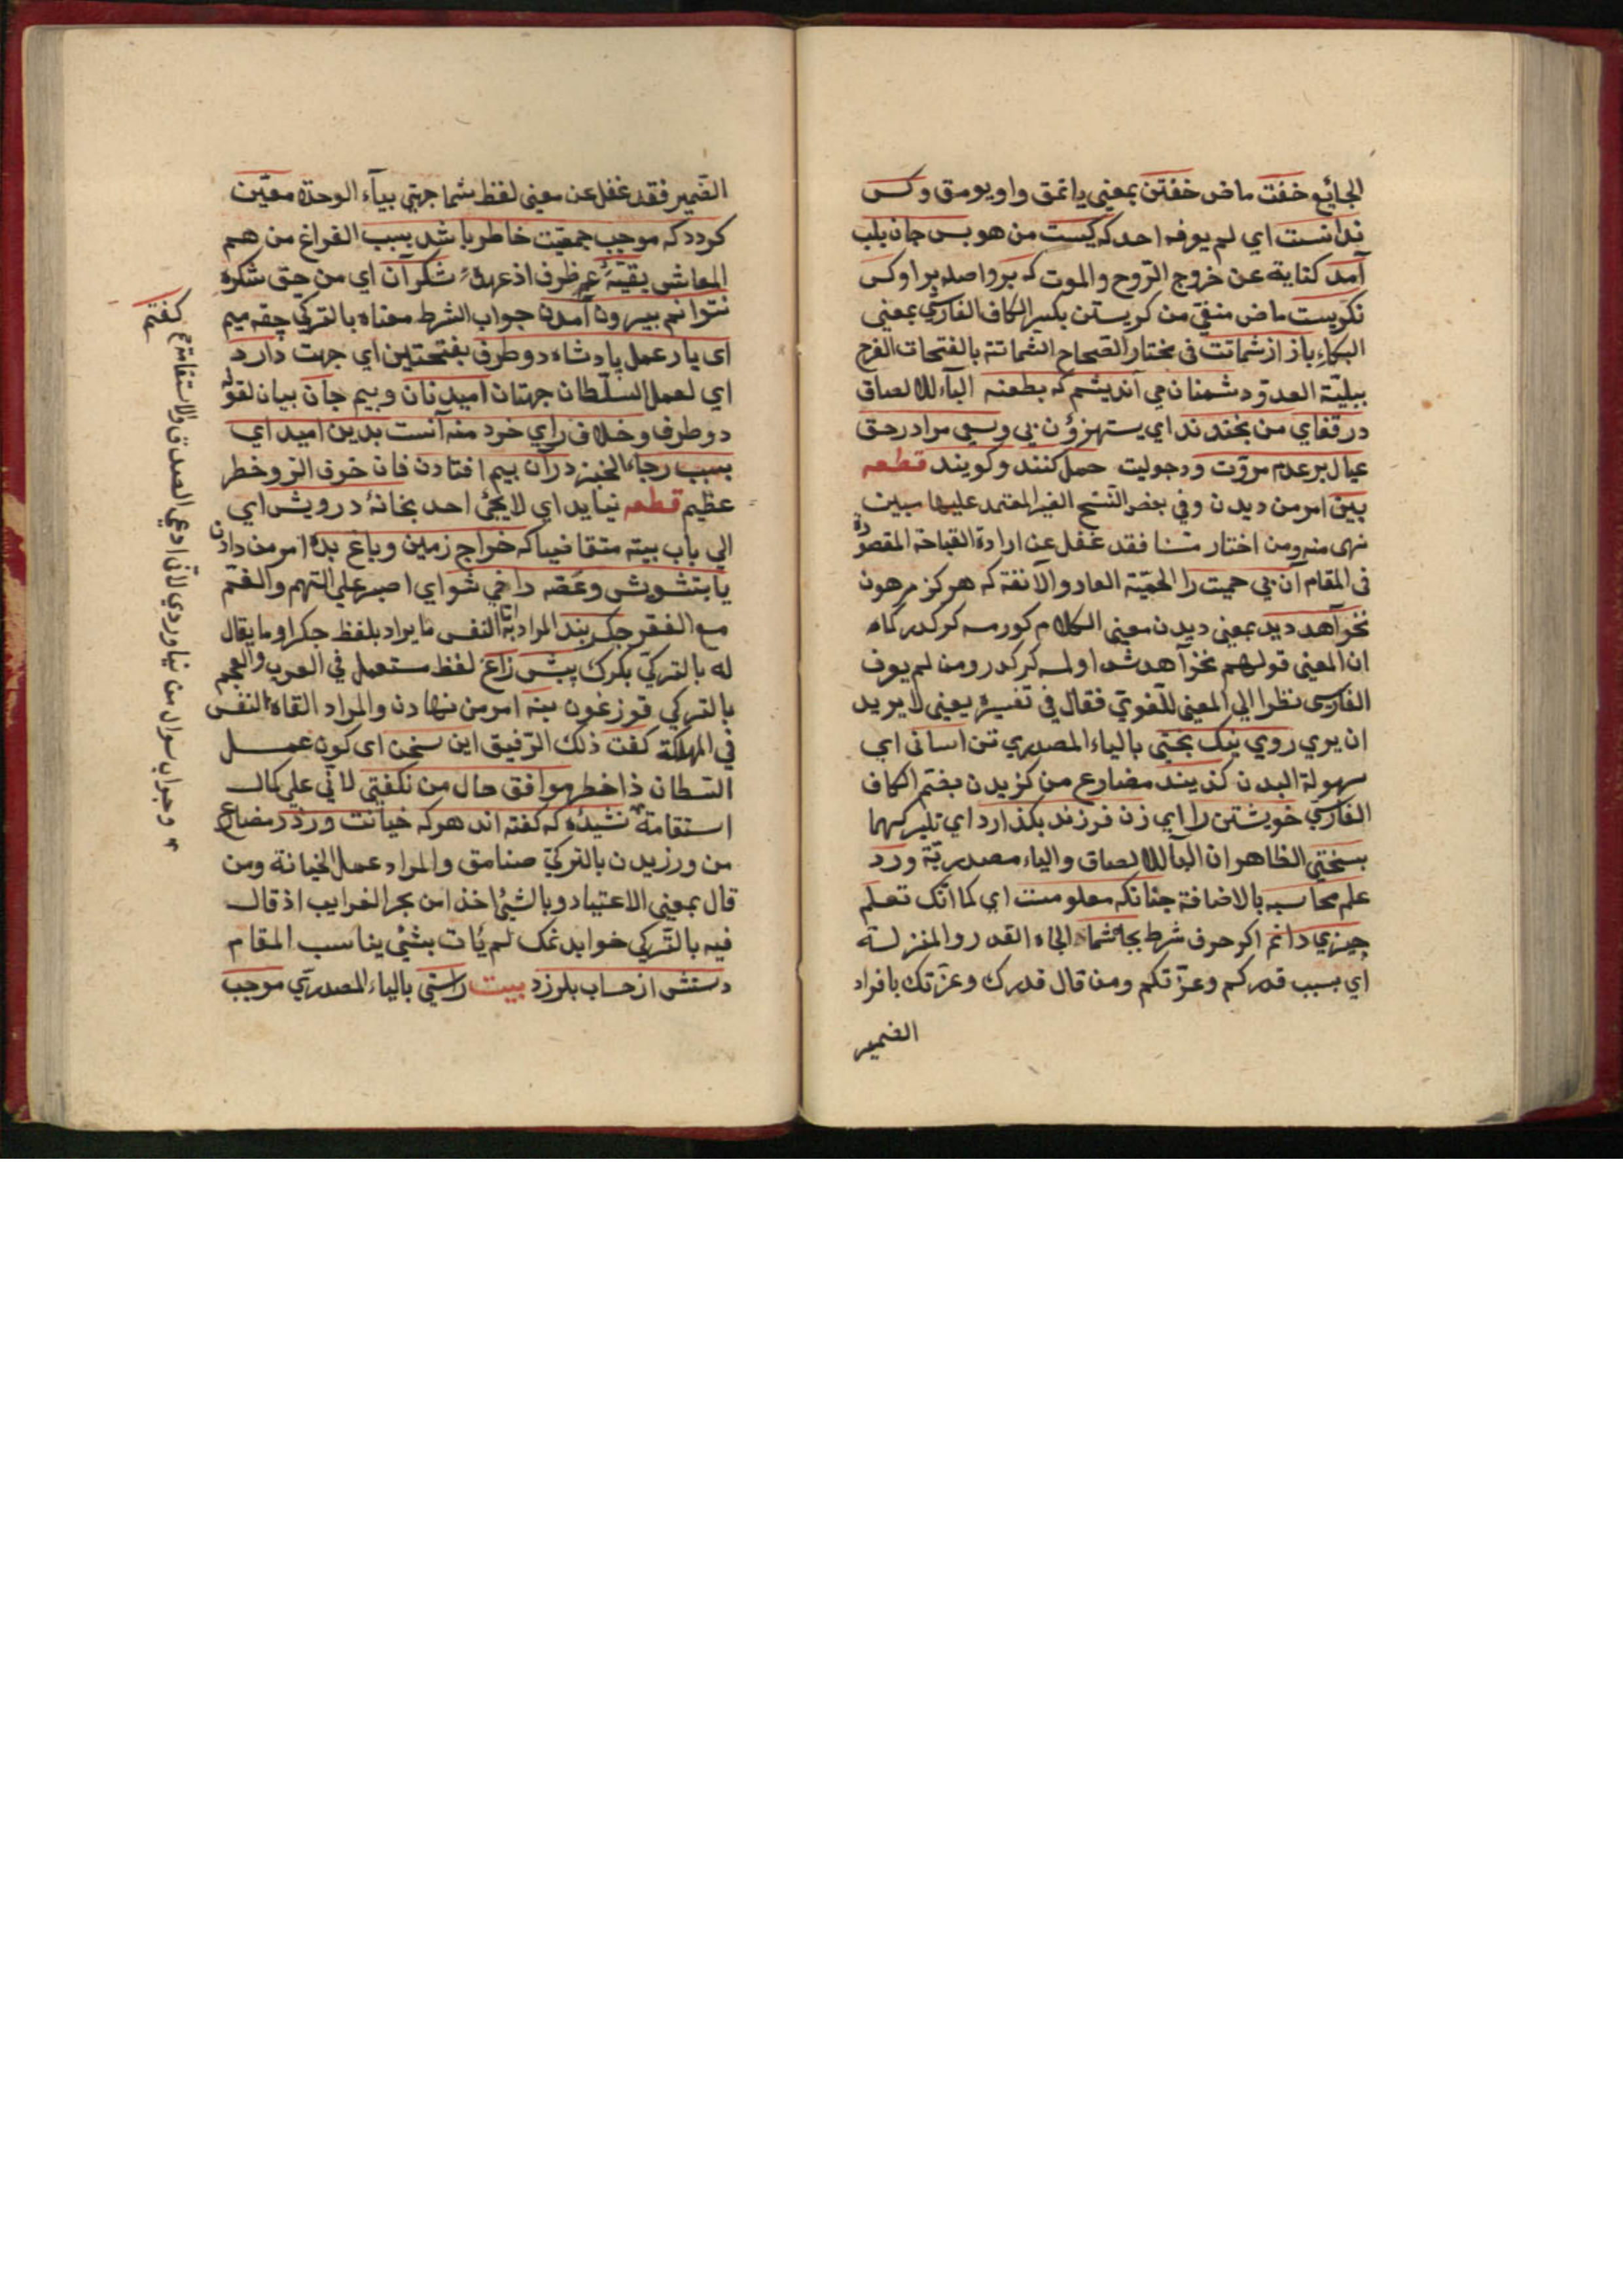 الجائع خفت ماض خفتن بمعنى ياتمق واويومق وكس
ندانست اي لم يعرفه احد كه كيست من هو بس جان بلب
آمد كناية عن خروج الروح والموت كه بر واصله بر او كس
نكريست ماض منفي من كريستن بكسر الكاف الفارسي بمعنى
البكاء باز از شماتت في مختار الصحاح الشماتة بالفتحات الفرح
ببليّة العدوّ دشمنان مي انديشم كه بطعنه الباء للالصاق
در قفاي من بخندند اي يستهزؤن بي وسعي مرا در حق
عيال بر عدم مروّت ورجوليت حمل كنند وكويند قطعه
ببين امر من ديدن وفي بعض النسخ الغير المعتمد عليها مبين
نهى منه ومن اختار متنا فقد غفل عن ارادة القباحة المقصودة
في المقام آن بي حميت را الحميّة العار والآنفة كه هركز مرهون
نخواهد ديد بمعنى ديدن معنى الكلام كورمسه كركدر كاه
ان المعنى قولهم نخواهد شد اولمسه كركدر ومن لم يعرف
الفارسي نظرا الي المعنى اللّغوي فقال في تفسيره يعنى لا يريد
ان يري روي نيك بختي بالياء المصدري تن آساني اي
سهولة البدن كزيند مضارع من كزيدن بضم الكاف
الفارسي خويشتن را اي زن فرزند بكذارد اي يتركهما
بسختي الظاهر ان الباء للالصاق والياء مصدريّة ورد
علم محاسبه بالاضافة چنانكه معلومست اي كما انّك تعلم
چيزي دانم اكر حرف شرط بجاه شما الجاه القدر والمنزلة
اي بسبب قدركم وعزّتكم ومن قال قدرك وعزّتك بافراد
الضمير
الضّمير فقد غفل عن معنى لفظ شما جهتي بياء الوحدة معيّن
كردد كه موجب جمعيّت خاطر باشد بسبب الفراغ من هم
المعاش بقيّهٔ عمر ظرف از عهدهٔ شكر آن اي من حق شكره
نتوانم بيرون آمدن جواب الشرط معناه بالتركي چقه ميم
اى يار عمل پادشاه دو طرف بفتحتين اي جهت دارد
اي لعمل السلّطان جهتان اميد نان وبيم جان بيان لقوله
دو طرف وخلاف راي خرد منه آنست بدين اميد اي
بسبب رجاء الخبز در آن بيم افتادن فان خوف الر وخطر
عظيم قطعه نيايد اي لا يجئ احد بخانهٔ درويش اي
الي باب بيته متقاضيا كه خراج زمين وباغ بده امر من دادن
يا بتشويش وغصّه راضي شو اي اصبر علي التهم والغمّ
مع الفقر جكربند المراد به النفس ما يراد بلفظ جكر او ما يقال
له بالتركي بكرك پيش زاغ لفظ مستعمل في العرب والعجم
بالتركي قوزغون بنه امر من نهادن والمراد القاه النفس
في المهلكة كفت ذلك الرّفيق اين سخن اى كون عمل
السلطان ذا خطر موافق حال من نكفتي لانّي علي كمال
استقامة نشنيدهٔ كه كفته اند هر كه خيانت ورزد مضارع
من ورزيدن بالتركي صنامق والمراد عمل الخيانة ومن
قال بمعنى الاعتياد وبالشئ اخذا من بحر الغرايب اذ قال
فيه بالتركي خوايدنمك لم يأت بشئ يناسب المقام
دستش از حساب بلرزد بيت راستي بالياء المصدريّ موجب
كفتم
وجواب سؤال من نياوردي لانّي ادعي الصدق والاستقامة